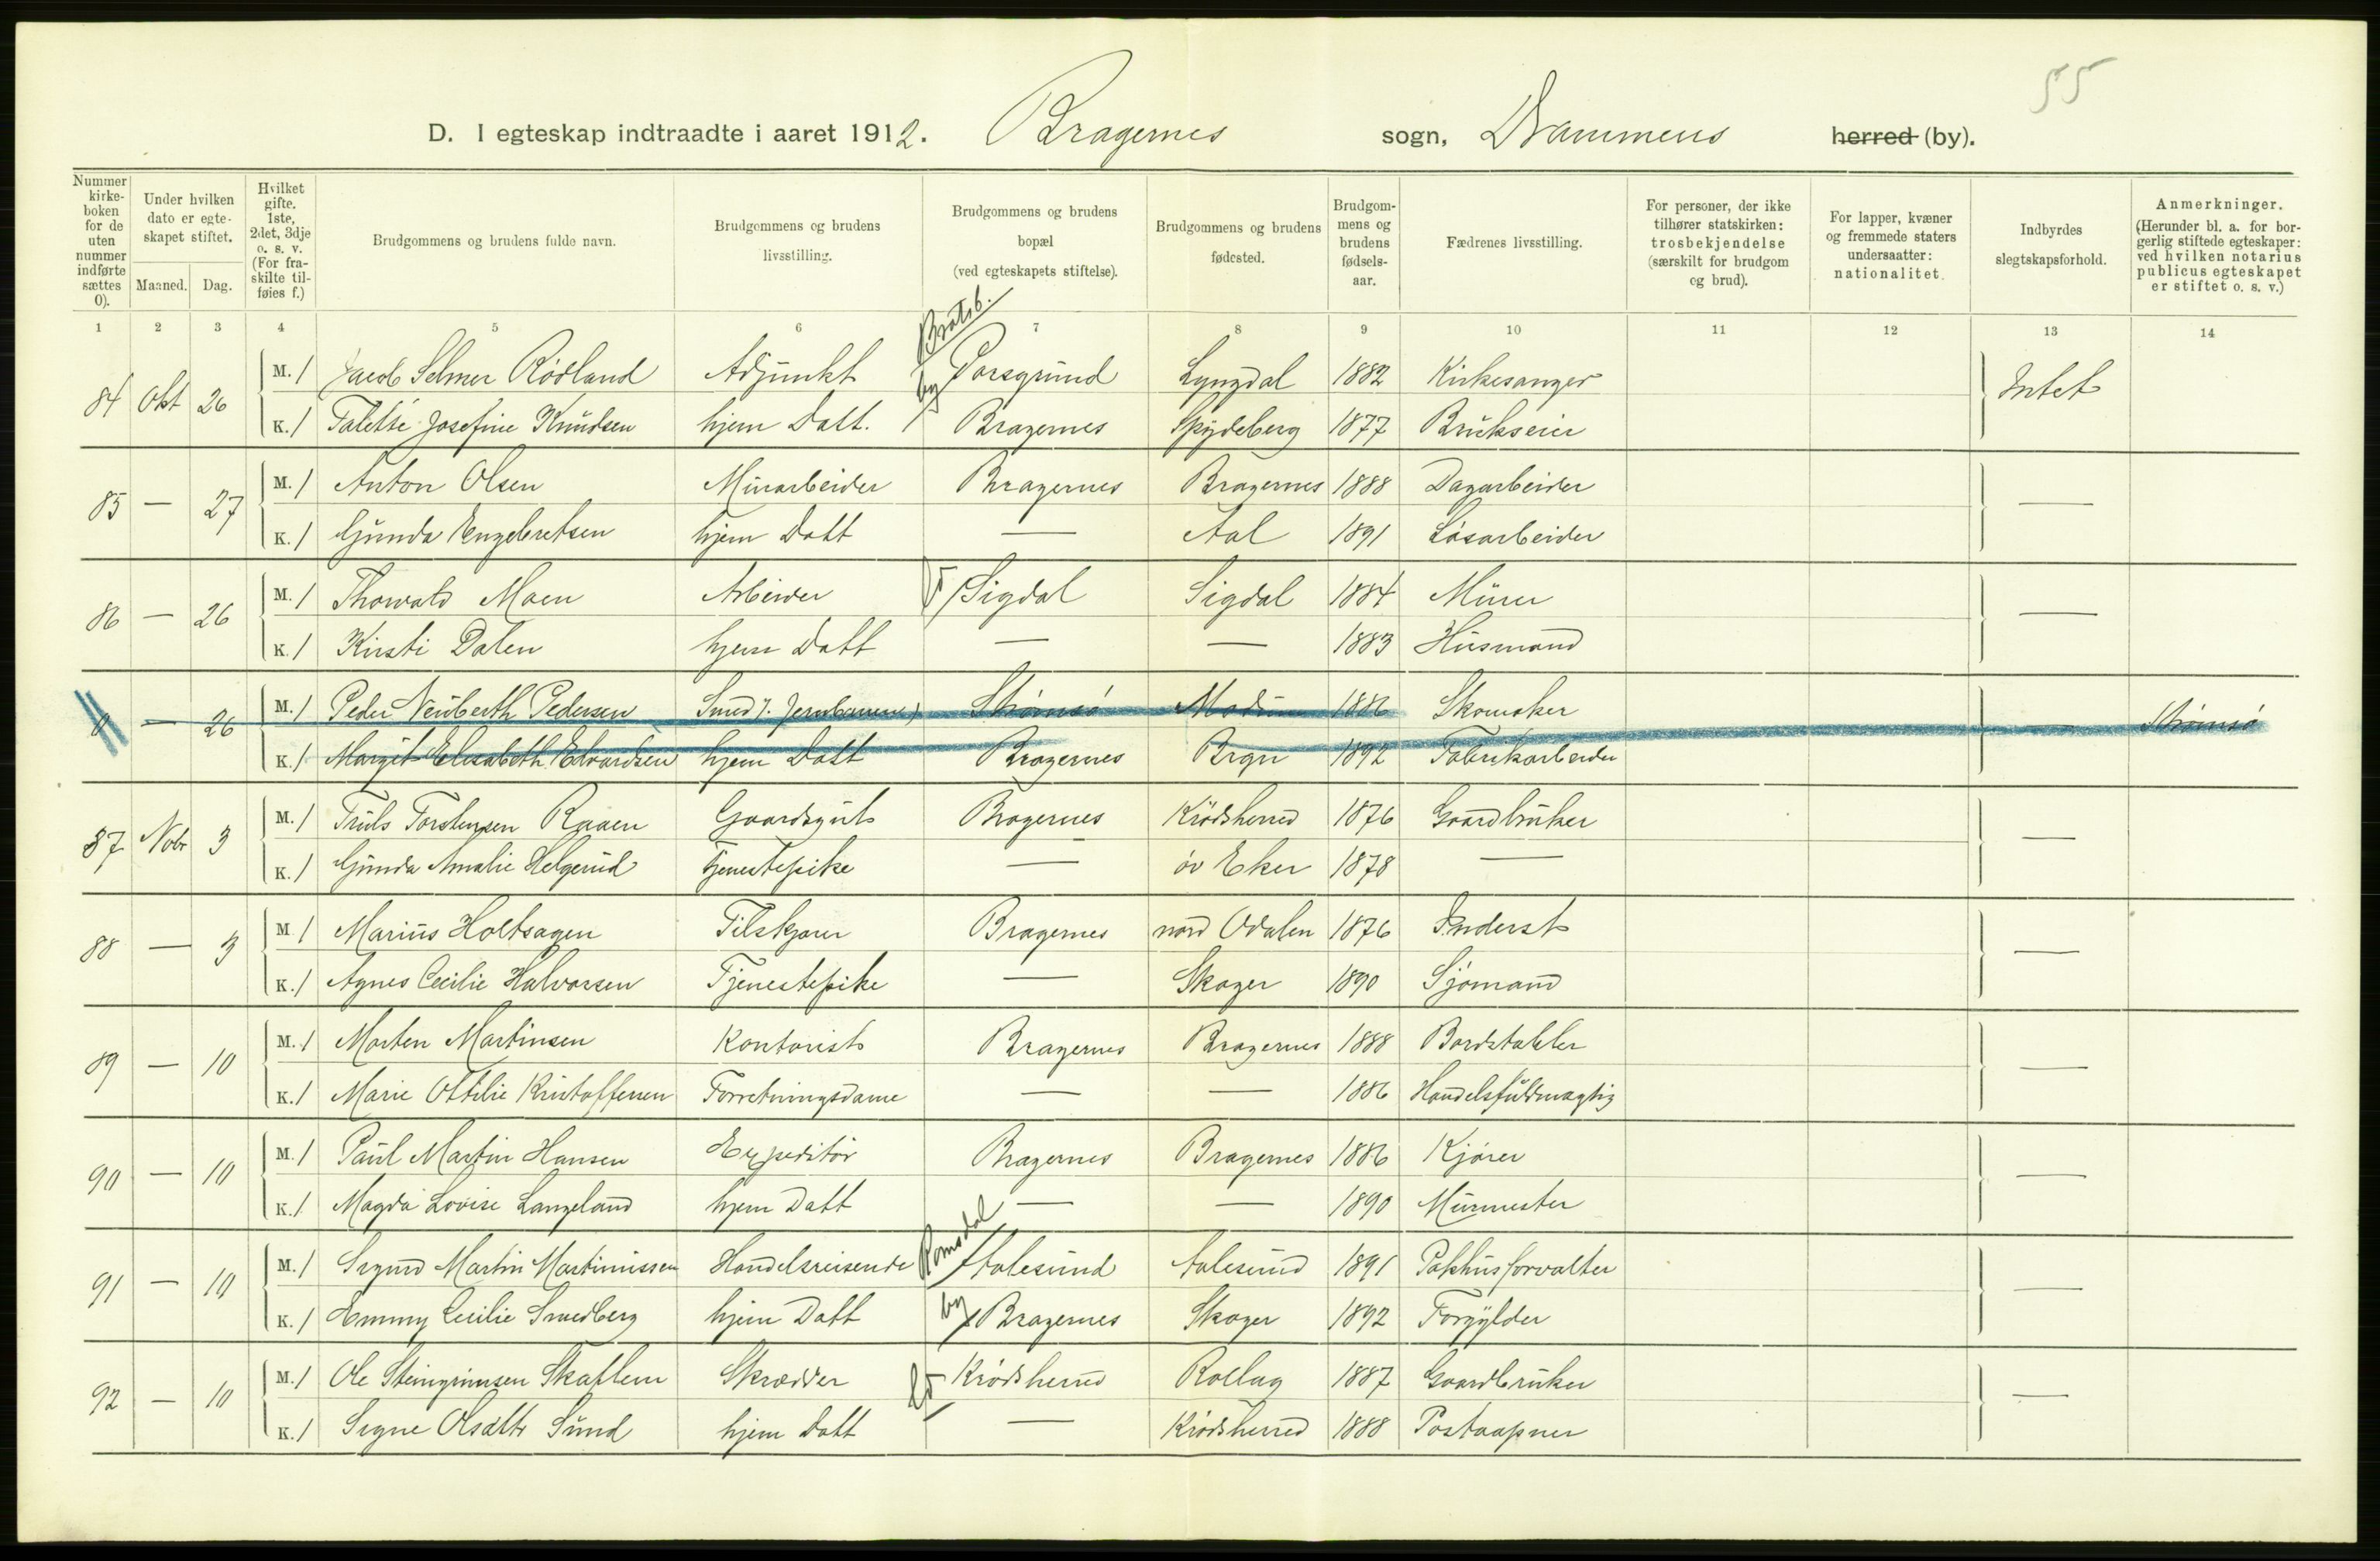 55
D. I egteskap indtraadte i aaret 1912. Bragernes sogn, Drammens herred (by).
Nummer kirkeboken for de uten nummer indførte sættes 0). | Under hvilken dato er egteskapet stiftet. Maaned. Dag. | Hvilket gifte. 1ste, 2det, 3dje o. s. v. (For fraskilte tilføies f.) | Brudgommens og brudens fulde navn. | Brudgommens og brudens livsstilling. | Brudgommens og brudens bopæl (ved egteskapets stiftelse). | Brudgommens og brudens fødested. | Brudgommens og brudens fødselsaar. | Fædrenes livsstilling. | For personer, der ikke tilhører statskirken: trosbekjendelse (særskilt for brudgom og brud). | For lapper, kvæner og fremmede staters undersaatter: nationalitet. | Indbyrdes slegtskapsforhold. | Anmerkninger. (Herunder bl. a. for borgerlig stiftede egteskaper: ved hvilken notarius publicus egteskapet er stiftet o. s. v.)
1 2 3 4 5 6 7 8 9 10 11 12 13 14
84 Okt 26 M. 1 Jacob Selmer Rödland Adjunkt Bratsb. by Porsgrund Lyngdal 1882 Kirkesanger Intet
K. 1 Talette Josefine Knudsen hjem Datt. Bragernes Spydeberg 1877 Brukseier
85 — 27 M. 1 Anton Olsen Murarbeider Bragernes Bragernes 1888 Dagarbeider —
K. 1 Gunda Engebretsen hjem Datt — Aal 1891 Løsarbeider
86 — 26 M. 1 Thorvald Moen Arbeider Sigdal Sigdal 1884 Murer —
K. 1 Kirsti Dalen hjem Datt — — 1883 Husmand
0 — 26 M. 1 Peder Neuberth Pedersen Smed v. Jernbanen Strømsø Modum 1886 Skomaker — Strømsø
K. 1 Margit Elisabeth Edvardsen hjem Datt Bragernes Brgn 1892 Fabrikarbeider
87 Nobr 3 M. 1 Truls Torstensen Raaen Gaardsgut Bragernes Krödsherred 1876 Gaardbruker —
K. 1 Gunda Amalie Helgerud Tjenestepike — öv Eker 1878 —
88 — 3 M 1 Marius Holtsagen Tilskjærer Bragernes nord Odalen 1876 Inderst —
K. 1 Agnes Cecilie Halvorsen Tjenestepike — Skoger 1890 Sjömand
89 — 10 M. 1 Morten Martinsen Kontorist Bragernes Bragernes 1888 Bordstabler —
K. 1 Marie Ottilie Kristoffersen Forretningsdame — — 1886 Handelsfuldmægtig
90 — 10 M. 1 Paul Martin Hansen Expeditör Bragernes Bragernes 1886 Kjörer —
K. 1 Magda Lovise Langeland hjem Datt — — 1890 Murmester
91 — 10 M. 1 Sigurd Martin Martinussen Handelsreisende Romsdal Aalesund Aalesund 1891 Pakhusforvalter —
K. 1 Emmy Cecilie Smedberg hjem Datt by Bragernes Skoger 1892 Forgylder
92 — 10 M. 1 Ole Steingrimsen Skaflem Skrædder Krödsherred Rollag 1887 Gaardbruker —
K. 1 Signe Olsdtr Sund hjem Datt — Krödsherred 1888 Postaapner